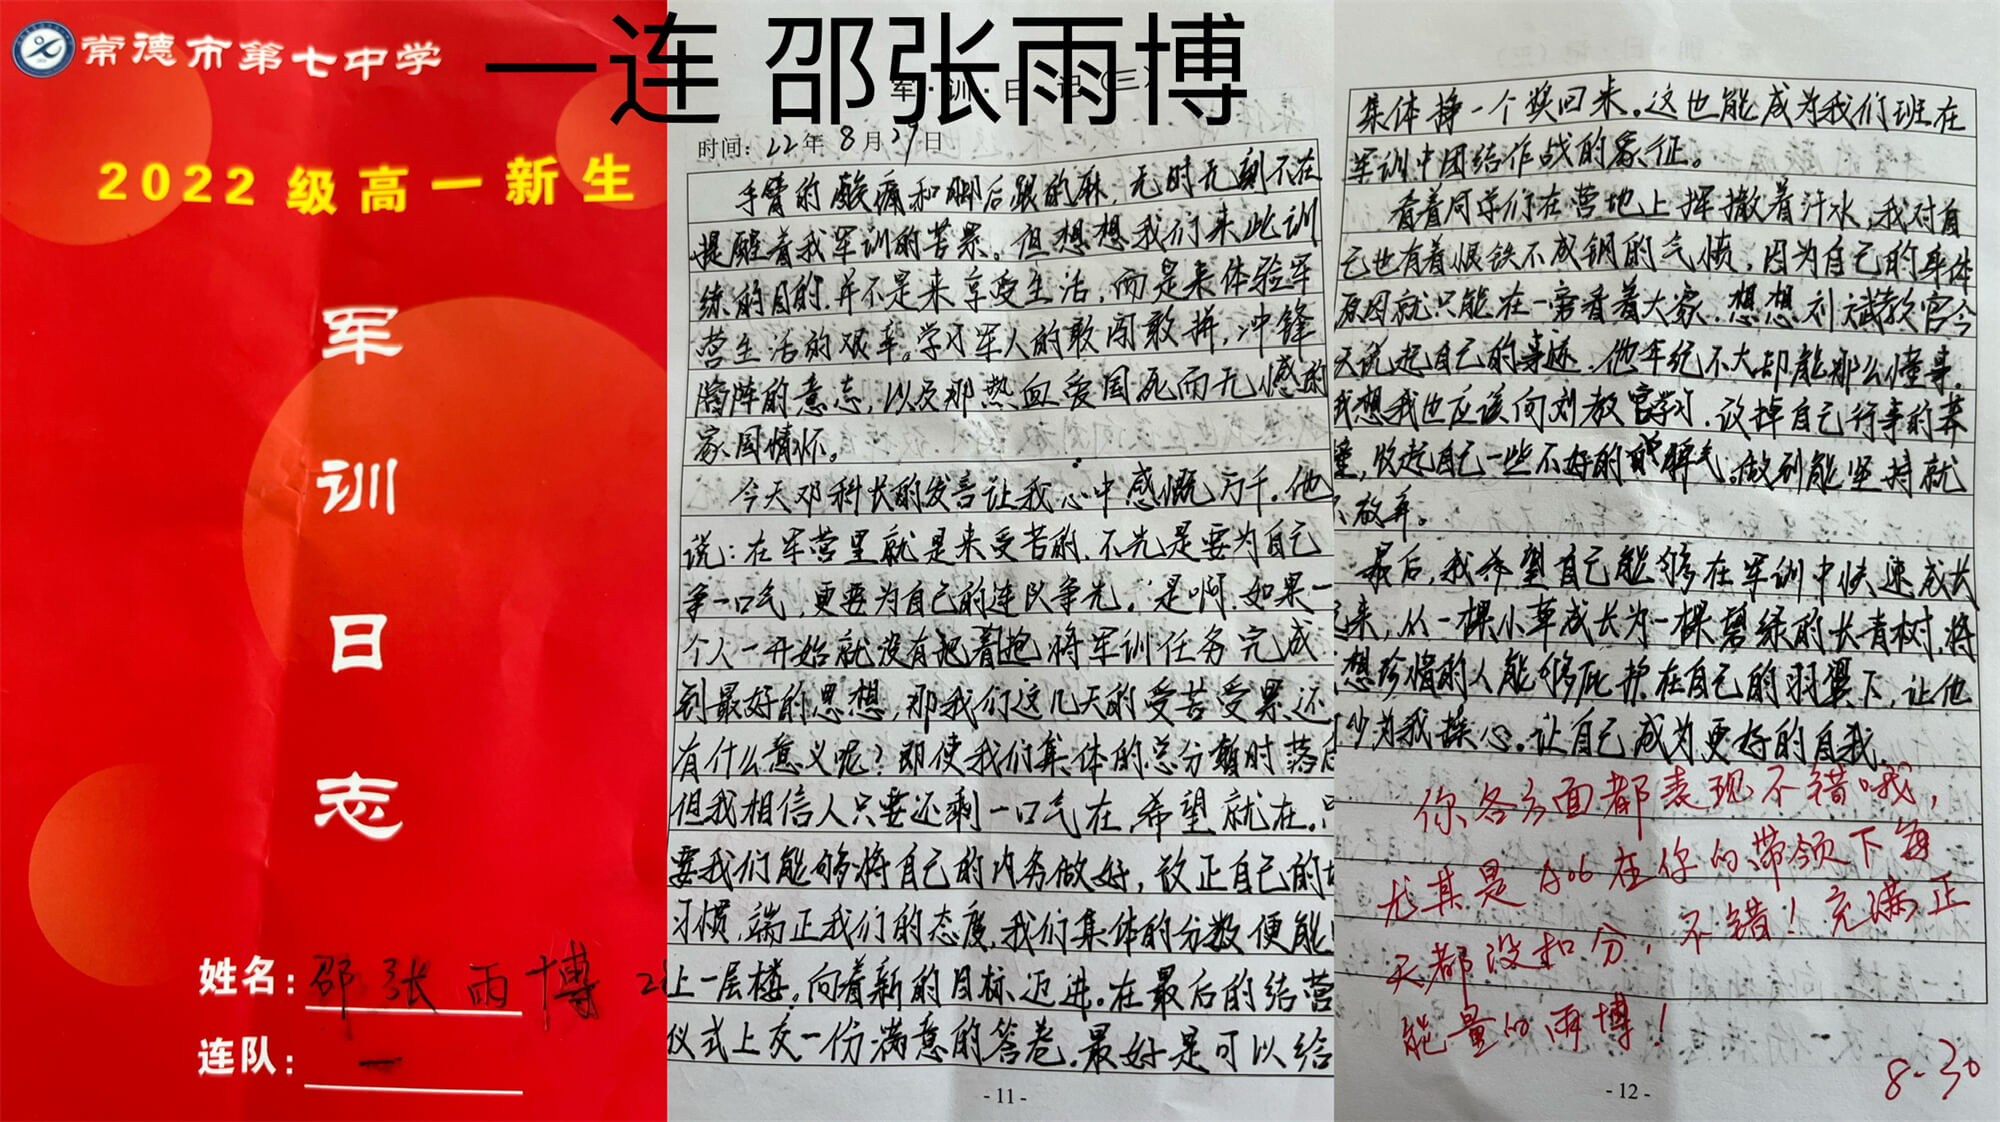 常德市第七中学
一连 邵张雨博
2022级高一新生
军
训
日
志
姓名：邵张雨博
连队：一
军·训·日·记（三）
时间：22年8月29日
手臂的酸痛和脚后跟的麻，无时无刻不在
提醒着我军训的苦累。但想想我们来此训
练的目的，并不是来享受生活，而是来体验军
营生活的艰辛。学习军人的敢闯敢拼，冲锋
陷阵的意志，以及那热血爱国死而无憾的
家国情怀。
今天邓科长的发言让我心中感慨万千。他
说：在军营里就是来受苦的，不光是要为自己
争一口气，更要为自己的连队争先。是啊，如果一
个人一开始就没有抱着将军训任务完成
到最好的思想，那我们这几天的受苦受累还
有什么意义呢？即使我们集体的总分暂时落后
但我相信人只要还剩一口气在，希望就在。只
要我们能够将自己的内务做好，改正自己的
习惯，端正我们的态度，我们集体的分数便能
上一层楼。向着新的目标迈进。在最后的结营
仪式上交一份满意的答卷。最好是可以给
- 11 -
集体挣一个奖回来。这也能成为我们班在
军训中团结作战的象征。
看着同学们在营地上挥撒着汗水，我对自
己也有着恨铁不成钢的气愤，因为自己的身体
原因就只能在一旁看着大家，想想刘斌教官今
天说起自己的事迹，他年纪不大却能那么懂事。
我想我也应该向刘教官学习，改掉自己行事的莽
撞，收起自己一些不好的脾气。做到能坚持就
不放弃。
最后，我希望自己能够在军训中快速成长
起来，从一棵小草成长为一棵碧绿的长青树，将
想珍惜的人能够庇护在自己的羽翼下，让他
少为我操心。让自己成为更好的自我。
你各方面都表现不错哦，
尤其是A06在你的带领下每
天都没扣分，不错！充满正
能量的雨博！
8-30
- 12 -